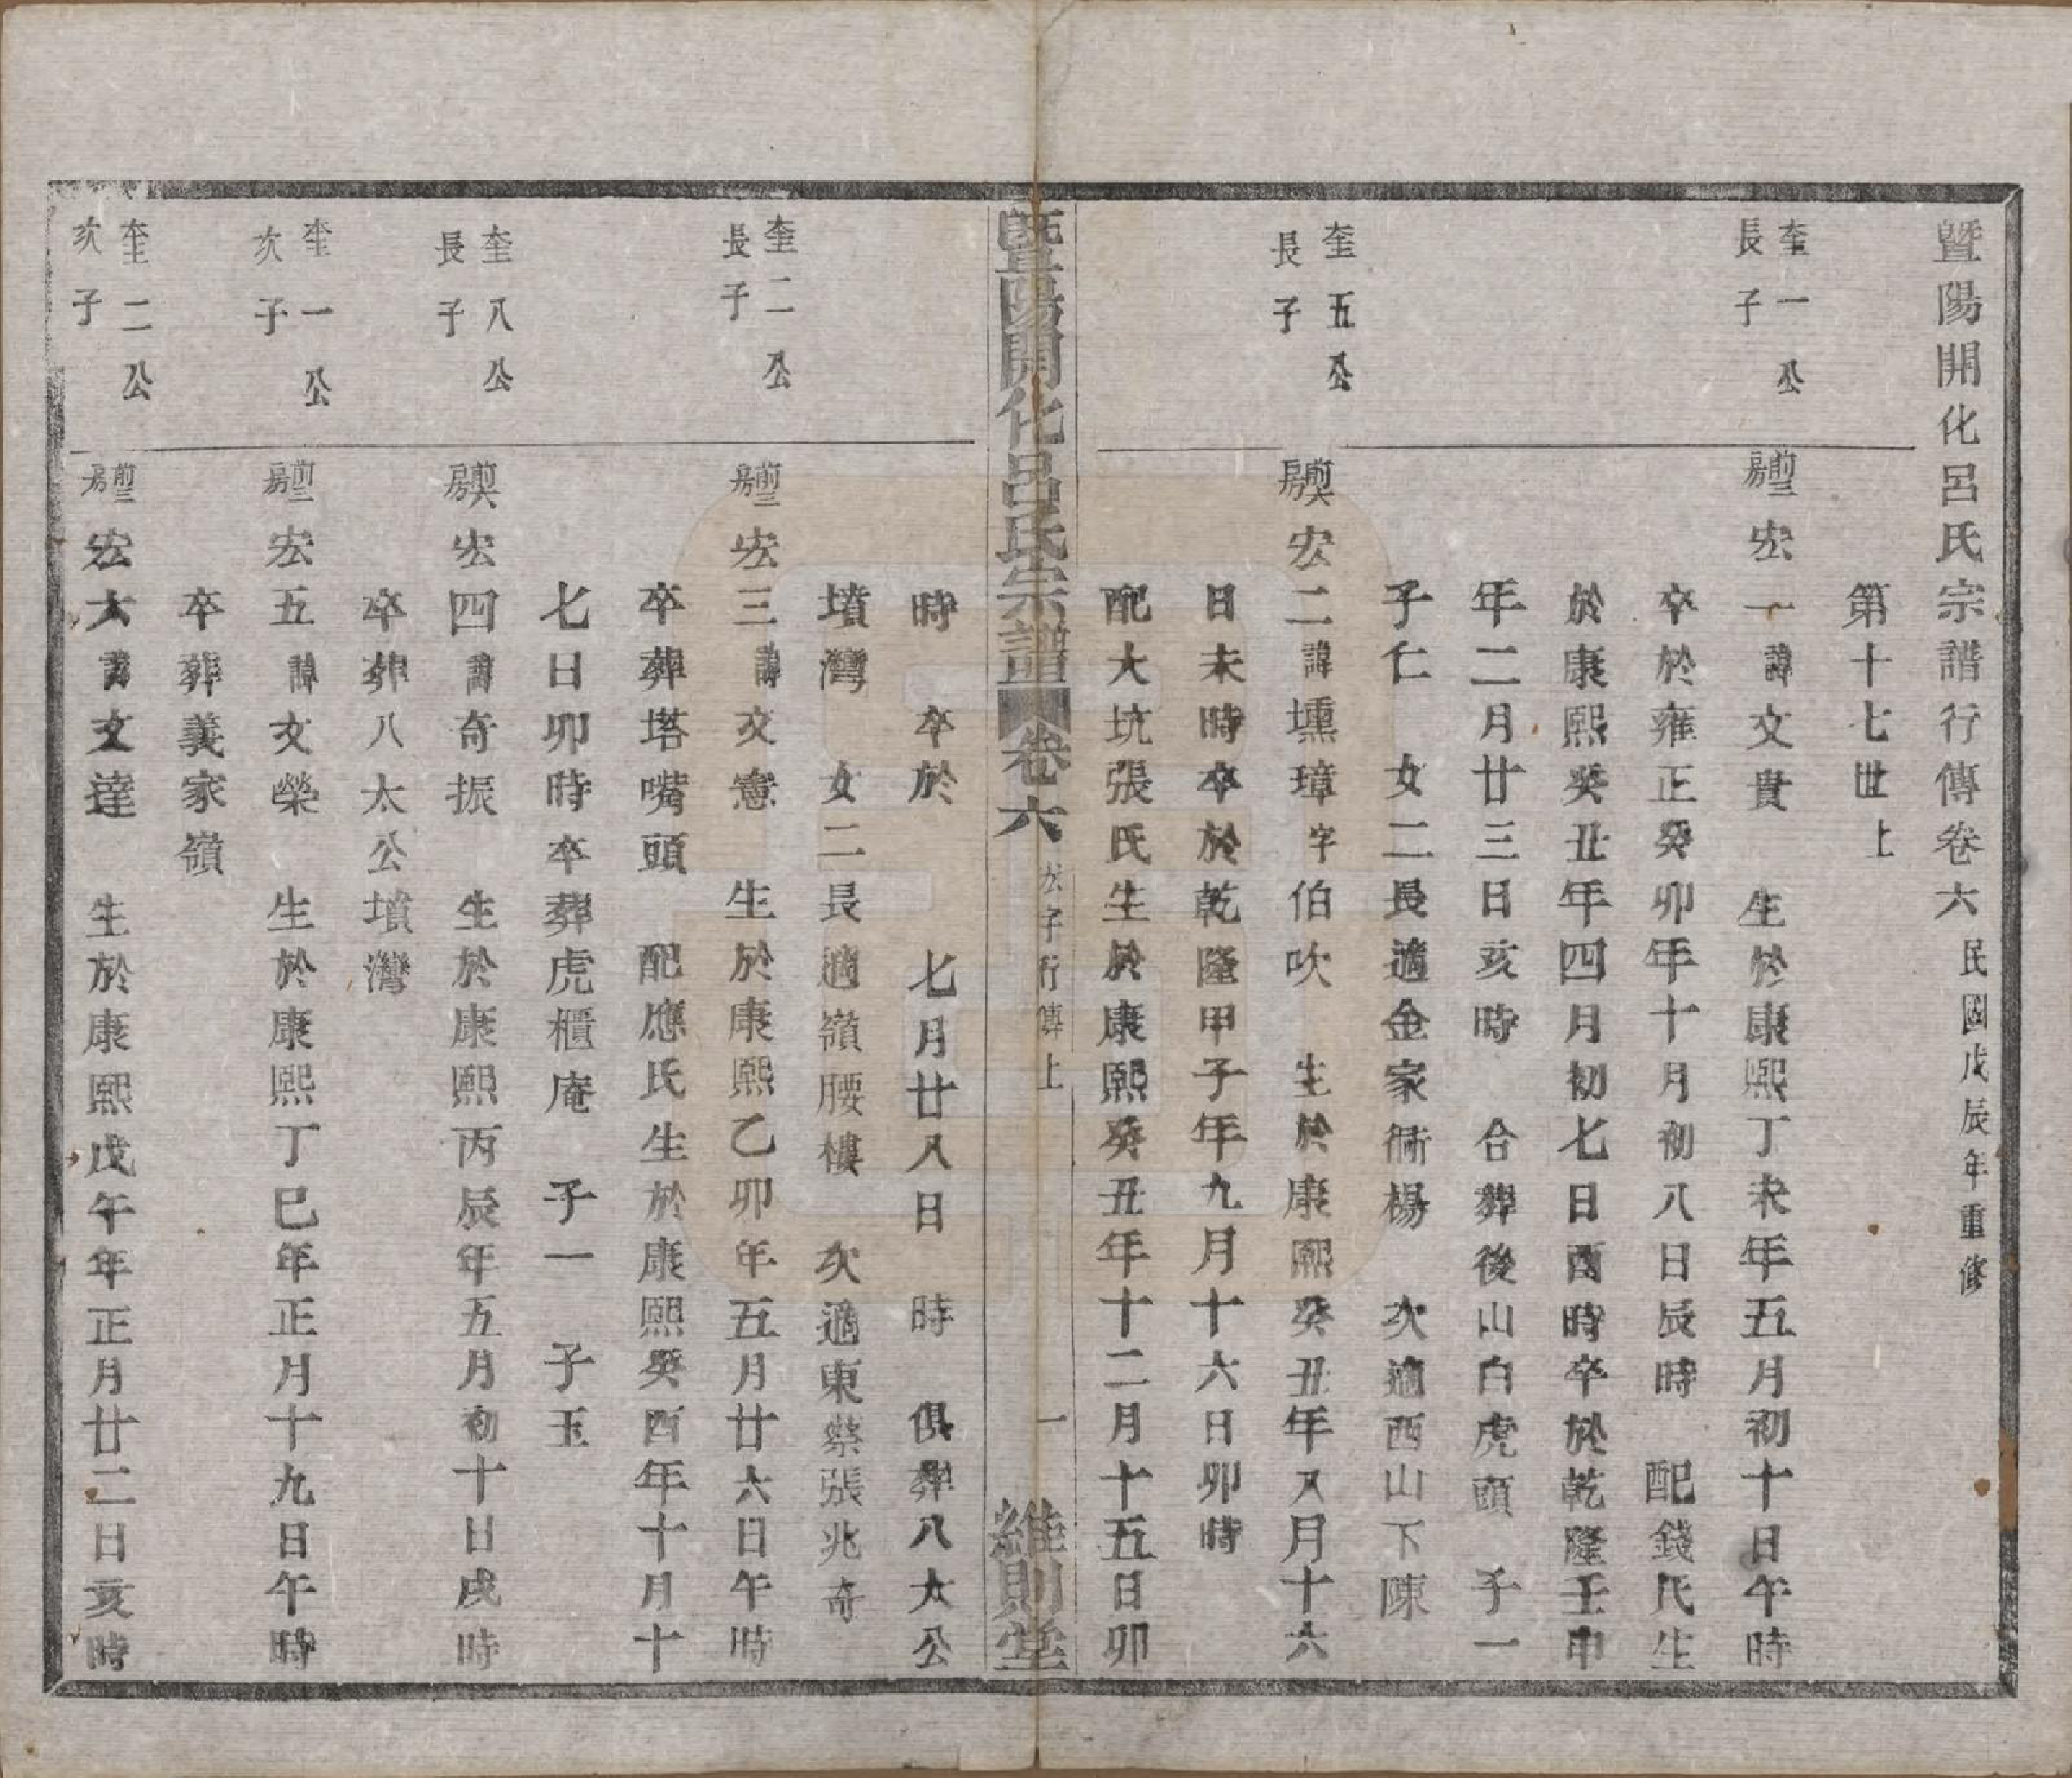 暨陽開化呂氏宗譜行傳卷六 民國戊辰年重修
第十七世上
奎一公
長子
前聖二房 宏一 諱文貴 生於康熙丁未年五月初十日午時
卒於雍正癸卯年十月初八日辰時 配錢氏生
於康熙癸丑年四月初七日酉時卒於乾隆壬申
年二月廿三日亥時 合葬後山白虎頭 子一
子仁 女二長適金家衕楊 次適西山下陳
奎五公
長子
房 宏二 諱壎璋字伯吹 生於康熙癸丑年又月十六
日未時卒於乾隆甲子年九月十六日卯時
配大坑張氏生於康熙癸丑年十二月十五日卯
暨陽開化呂氏宗譜 卷六 宏字行傳上 一 維則堂
時 卒於 七月廿八日 時 俱葬八太公
墳灣 女二長適嶺腰樓 次適東蔡張兆奇
奎二公
長子
前聖二房 宏三 諱文憲 生於康熙乙卯年五月廿六日午時
卒葬塔嘴頭 配應氏生於康熙癸酉年十月十
七日卯時卒葬虎櫃庵 子一 子玉
奎八公
長子
房 宏四 諱奇振 生於康熙丙辰年五月初十日戌時
卒葬八太公墳灣
奎一公
次子
前聖二房 宏五 諱文榮 生於康熙丁巳年正月十九日午時
卒葬義家嶺
奎二公
次子
前聖二房 宏六 諱文達 生於康熙戊午年正月廿二日亥時